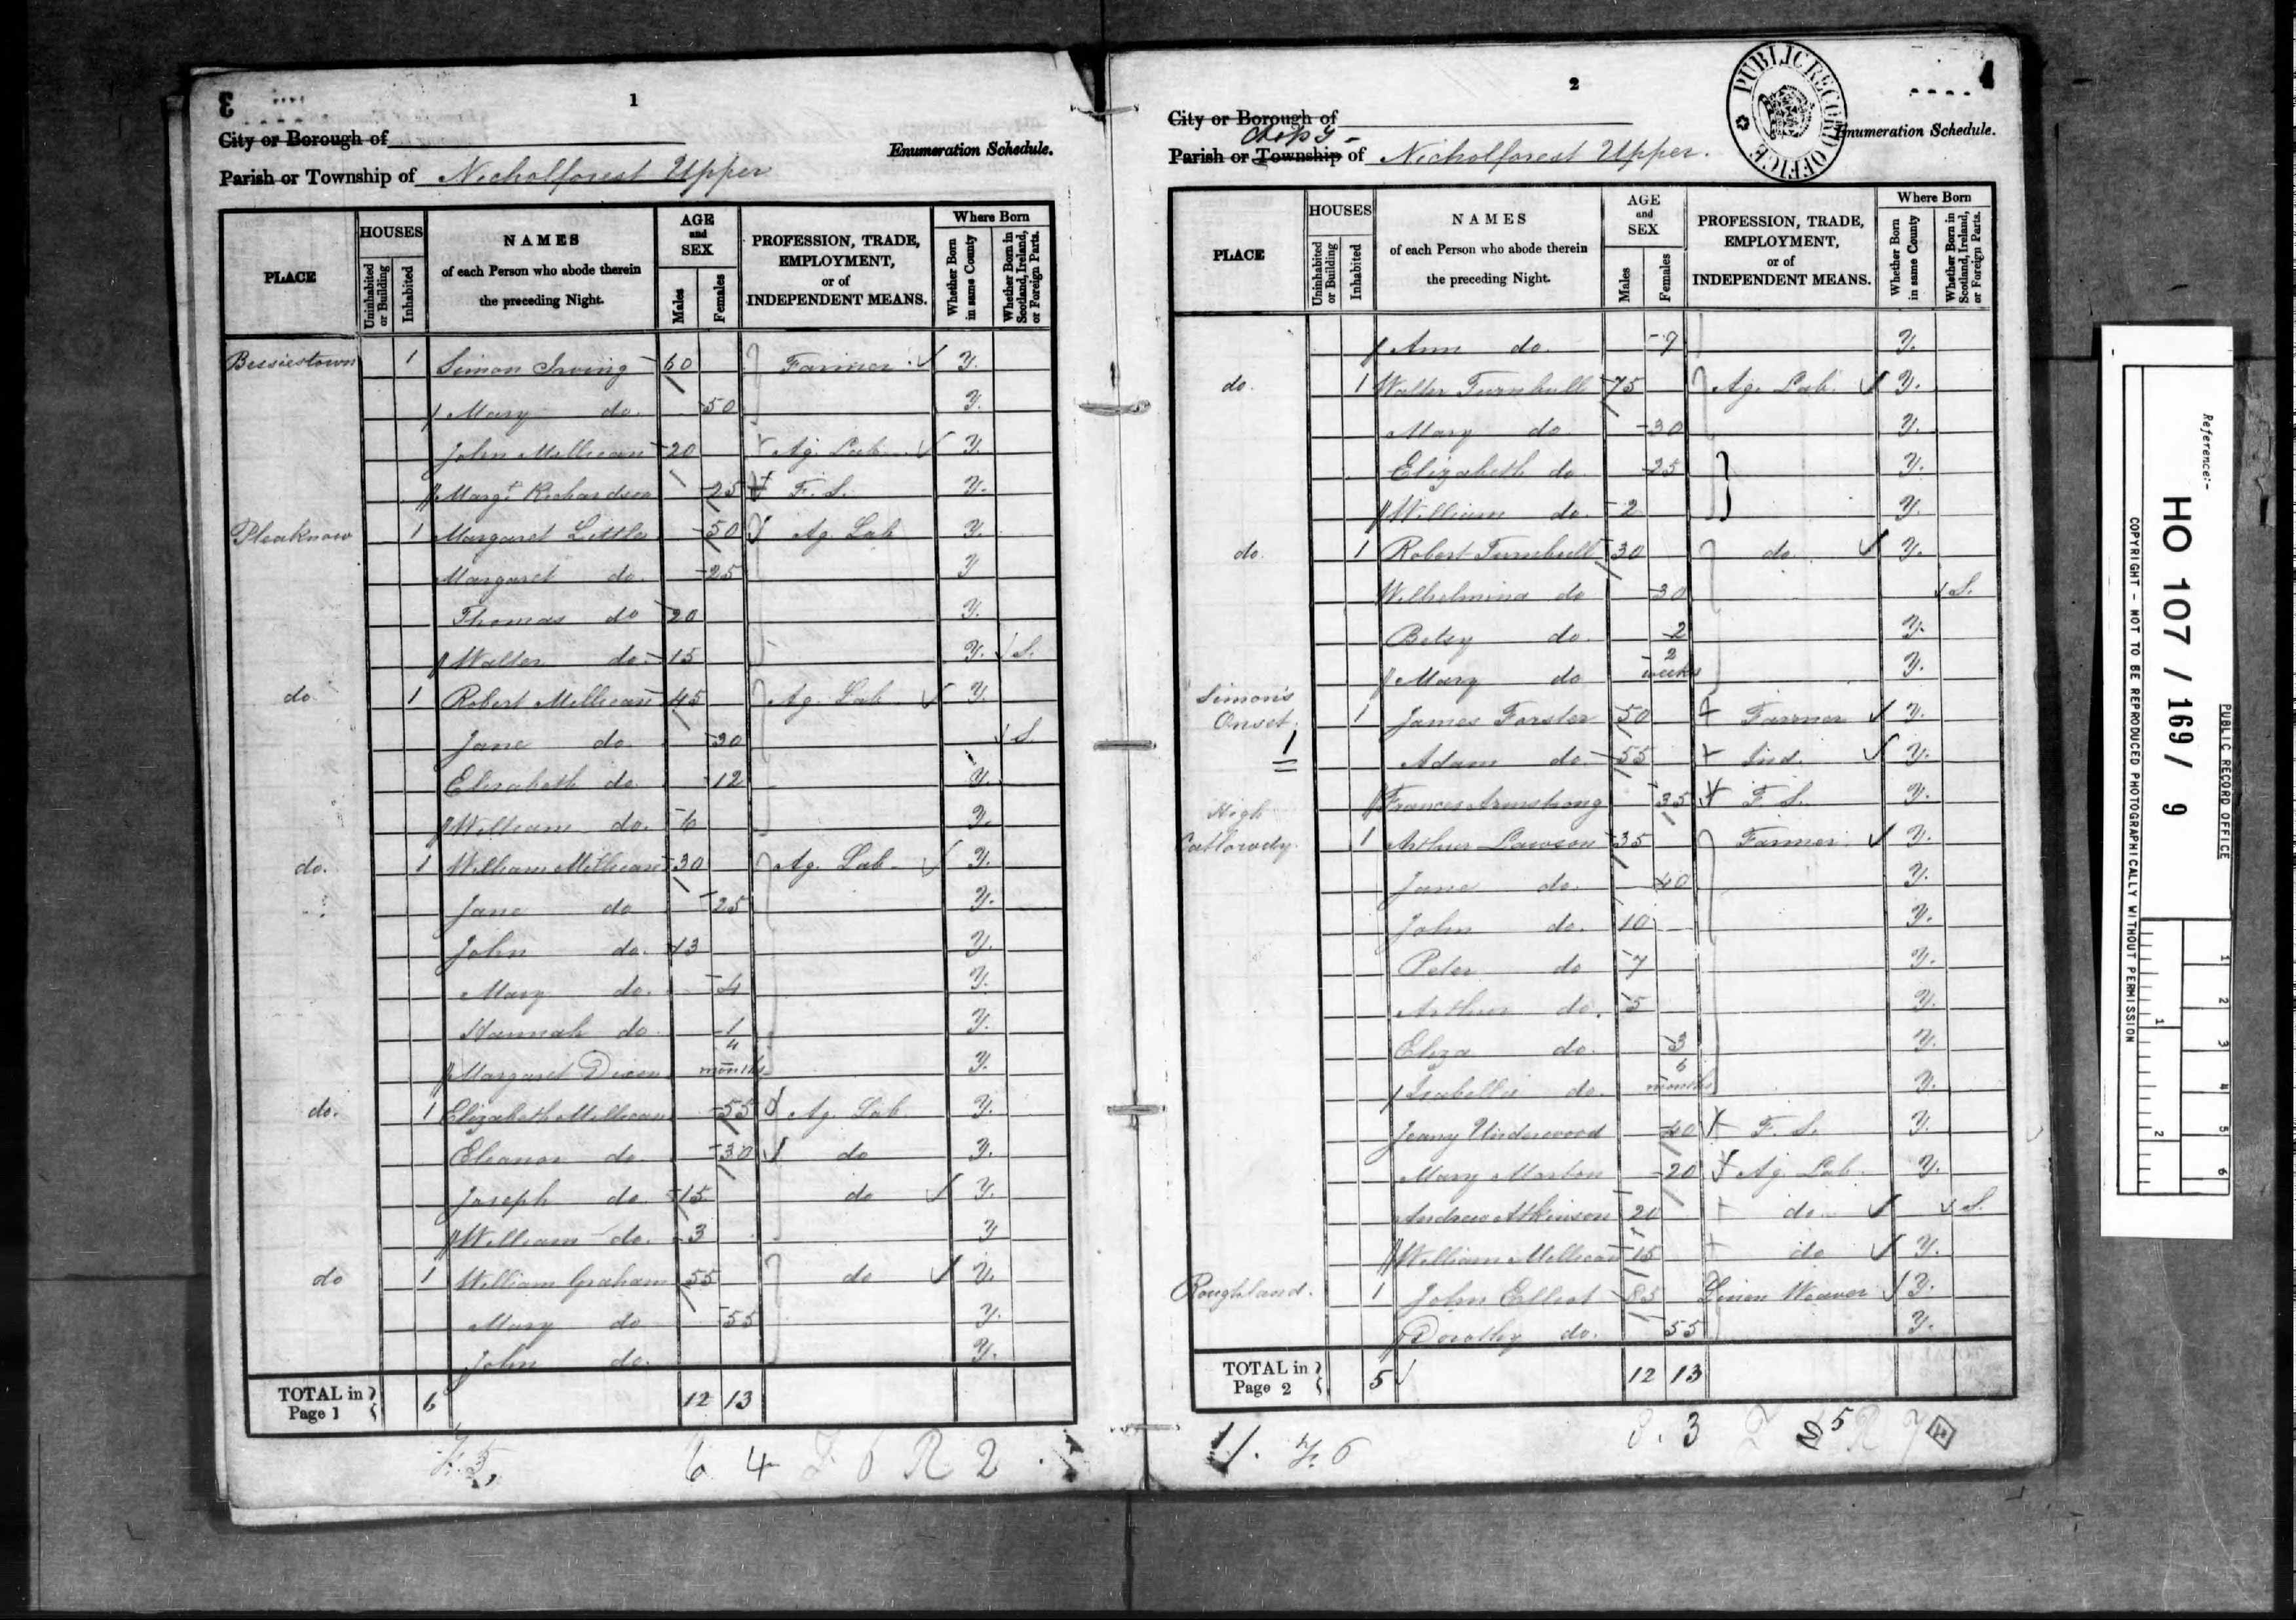 1
City or Borough of
Enumeration Schedule.
Parish or Township of Nicholforest Upper
PLACE
HOUSES
Uninhabited or Building
Inhabited
NAMES
of each Person who abode therein
the preceding Night.
AGE and SEX
Males
Females
PROFESSION, TRADE,
EMPLOYMENT,
or of
INDEPENDENT MEANS.
Where Born
Whether Born in same County
Whether Born in Scotland, Ireland, or Foreign Parts.
Bessiestown 1 Simon Irving 60 Farmer Y.
Mary do. 50 Y.
John Millican 20 Ag. Lab. Y.
Margt. Richardson 25 F. S. Y.
Pleaknow 1 Margaret Little 50 Ag. Lab Y.
Margaret do. 25 Y
Thomas do 20 Y.
Walter do. 15 Y. S.
do 1 Robert Millican 45 Ag. Lab Y.
Jane do. 30 S.
Elizabeth do. 12 Y.
William do. 6 Y.
do. 1 William Millican 30 Ag. Lab. Y.
Jane do 25 Y.
John do. 13 Y.
Mary do. 4 Y.
Hannah do 1 Y.
Margaret Dixon 4 months Y.
do. 1 Elizabeth Millican 55 Ag. Lab Y.
Eleanor do. 30 do Y.
Joseph do. 15 do Y.
William do. 3 Y
do 1 William Graham 55 do Y.
Mary do 55 Y.
John do. Y.
TOTAL in Page 1 6 12 13
6 4 R 2
2
City or Borough of
Enumeration Schedule.
Chapy
Parish or Township of Nicholforest Upper.
PUBLIC RECORD OFFICE
PLACE
HOUSES
Uninhabited or Building
Inhabited
NAMES
of each Person who abode therein
the preceding Night.
AGE and SEX
Males
Females
PROFESSION, TRADE,
EMPLOYMENT,
or of
INDEPENDENT MEANS.
Where Born
Whether Born in same County
Whether Born in Scotland, Ireland, or Foreign Parts.
Ann do. 7 Y.
do. 1 Walter Turnbull 75 Ag. Lab. Y.
Mary do 30 Y.
Elizabeth do 25 Y.
William do. 2 Y.
do. 1 Robert Turnbull 30 do. Y.
Wilhelmina do 30 S.
Betsy do. 2 Y.
Mary do 2 weeks Y.
Simon's
Onset. 1 James Forster 50 Farmer Y.
Adam do. 55 Ind. Y.
Frances Armstrong 35 F. S. Y.
High
Catlowdy. 1 Arthur Lawson 35 Farmer Y.
Jane do. 40 Y.
John do. 10 Y.
Peter do 7 Y.
Arthur do. 5 Y.
Eliza do. 3 Y.
Isabella do. 6 months Y.
Jeany Underwood 40 F. S. Y.
Mary Marton 20 Ag. Lab. Y.
Andrew Atkinson 20 do. S.
William Millican 15 do Y.
Roughland. 1 John Elliot Linen Weaver Y.
Dorothy do. 55 Y.
TOTAL in Page 2 5 12 13
Reference:-
HO 107 / 169 / 9
PUBLIC RECORD OFFICE
COPYRIGHT - NOT TO BE REPRODUCED PHOTOGRAPHICALLY WITHOUT PERMISSION
1
2
3
4
5
6
1
2